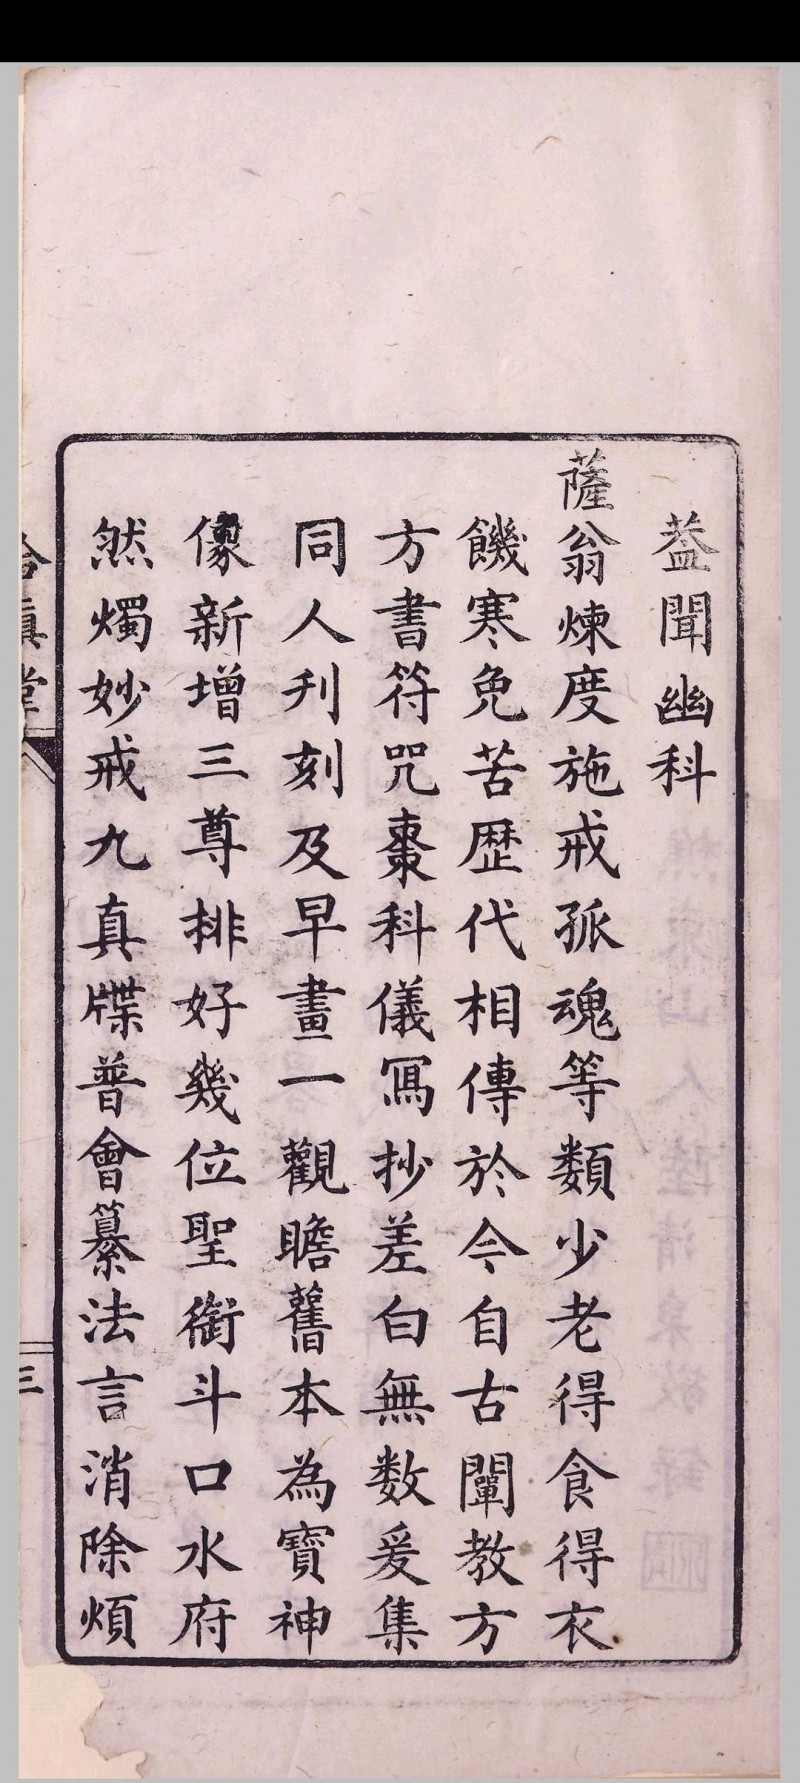 蓋聞幽科
薩翁煉度施戒孤魂等類少老得食得衣
饑寒免苦歴代相傳於今自古闡教方
方書符咒棗科儀寫抄差白無数爰集
同人刋刻及早畫一觀瞻舊本為寳神
像新增三尊排好幾位聖銜斗口水府
然燭妙戒九真牒普會纂法言消除煩
三